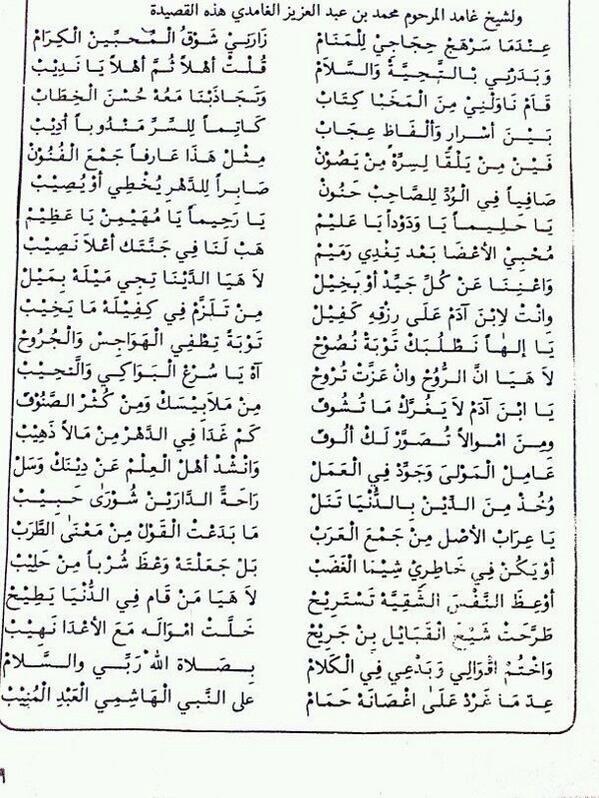 ولشيخ غامد المرحوم محمد بن عبد العزيز الغامدي هذه القصيدة
عِنْدَمَا سَرْهَجْ حِجَاجِيْ لِلْمَنَامْ زَارَنِيْ شَوْقُ الْمُحِبِّينْ الْكِرَامْ
وَبَدَرْنِي بِالتَّحِيَّةْ وَالسَّلاَمْ قُلْتْ أهْلاً ثُمَّ أهْلاً يَا نَدِيْبْ
قَامْ نَاوَلْنِيْ مِنَ الْمَخْبَا كِتَابْ وَتَجَاذَبْنَا مَعْهْ حُسْنَ الْخِطَابْ
بَيْنَ أسْرَارٍ وَألْفَاظٍ عِجَابْ كَاتِماً لِلسِّرِّ مَنْدُوباً أدِيْبْ
فَيْنْ مِنْ يَلْقَا لِسِرَّهْ مِنْ يَصُوْنْ مِثْلْ هَذَا عَارِفاً جَمْعَ الْفُنُوْنْ
صَافِياً فِي الْوُدِّ لِلصَّاحِبْ حَنُونْ صَابِراً لِلدَّهْرِ يُخْطِي أوْ يُصِيْبْ
يَا حَلِيْماً يَا وَدُوْداً يَا عَلِيْمْ يَا رَحِيماً يَا مُهَيْمِنْ يَا عَظِيْمْ
مُحْيِيْ الأعْضَا بَعْد تِغْدِي رَمِيْمْ هَبْ لَنَا فِي جَنَّتَك أعْلاَ نَصِيْبْ
وَاغْنِنَا عَنْ كُلِّ جَيِّدْ أوْ بَخِيْلْ لاَ هَيَا الدُّنْيَا تِجِي مَيْلَهْ بِمَيْلْ
وانْتْ لاِبْنَ آدَمْ عَلَى رِزْقِهِ كَفِيْلْ مِنْ تَلَزَّمْ فِي كِفِيْلَهْ مَا يَخِيْبْ
يَا إلهَاً نَطْلُبَكْ تَوْبَةْ نُصُوْحْ تَوْبَةً تِطْفِي الْهَوَاجِسْ وَالْجُرُوحْ
لاَ هَيَا انَّ الرُّوْحْ وانْ عَزَّتْ تُرْوحْ آهْ يَا سُرْعَ الْبَوَاكِي وَالنَّحِيْبْ
يَا ابْنَ آدَمْ لاَ يَغُرَّكْ مَا تُشُوفْ مِنْ مَلاَبِيْسَكْ وَمِنْ كُثْرْ الصُّنُوْفْ
وَمِنَ امْوالاً تُصَوَّرْ لَكْ ألُوفْ كَمْ غَدَا فِي الدَّهْرِ مِنْ مَالاً ذَهِيْبْ
عَامِلْ الْمَوْلَى وَجَوِّدْ فِي الْعَمَلْ وَانْشُدْ أهْلَ الْعِلْمْ عَنْ دِيْنِكْ وَسَلْ
وَخُذْ مِنَ الدِّيْنْ بِالدُّنْيَا تَنَلْ رَاحَةَ الدَّارَيْنْ شُوْرَى حَبِيْبْ
يَا عِرَابْ الأصْلْ مِنْ جَمْعَ الْعَرَبْ مَا بَدَعْتْ الْقَوْلْ مِنْ مَعْنَى الطَّرَبْ
أوْ يَكُنْ فِي خَاطِرِيْ شِيْمَا الْغَضَبْ بَلْ جَعَلْتَهْ وَعْظْ شُرْباً مِنْ حَلِيْبْ
أوْعِظَ النَّفْسَ الشَّقِيَّهْ تَسْتَرِيْحْ لاَ هَيَا مَنْ قَامْ فِي الدُّنْيَا يَطِيْحْ
طَرَّحَتْ شَيْخَ الْقَبَايِلْ بِنْ جَرِيْحْ خَلَّتْ امْوَالَهْ مَعَ الأعْدَا نَهِيْبْ
وَاخْتُمْ اقْوَالِي وَبَدْعِي فِي الْكَلاَمْ بِصَلاَة اللهْ رَبِّي والسَّلاَمْ
عِدّ مَا غَرَّدْ عَلَى اغْصَانَهْ حَمَامْ على النَّبي الْهَاشِمِي الْعَبْدِ الْمُنِيْبْ